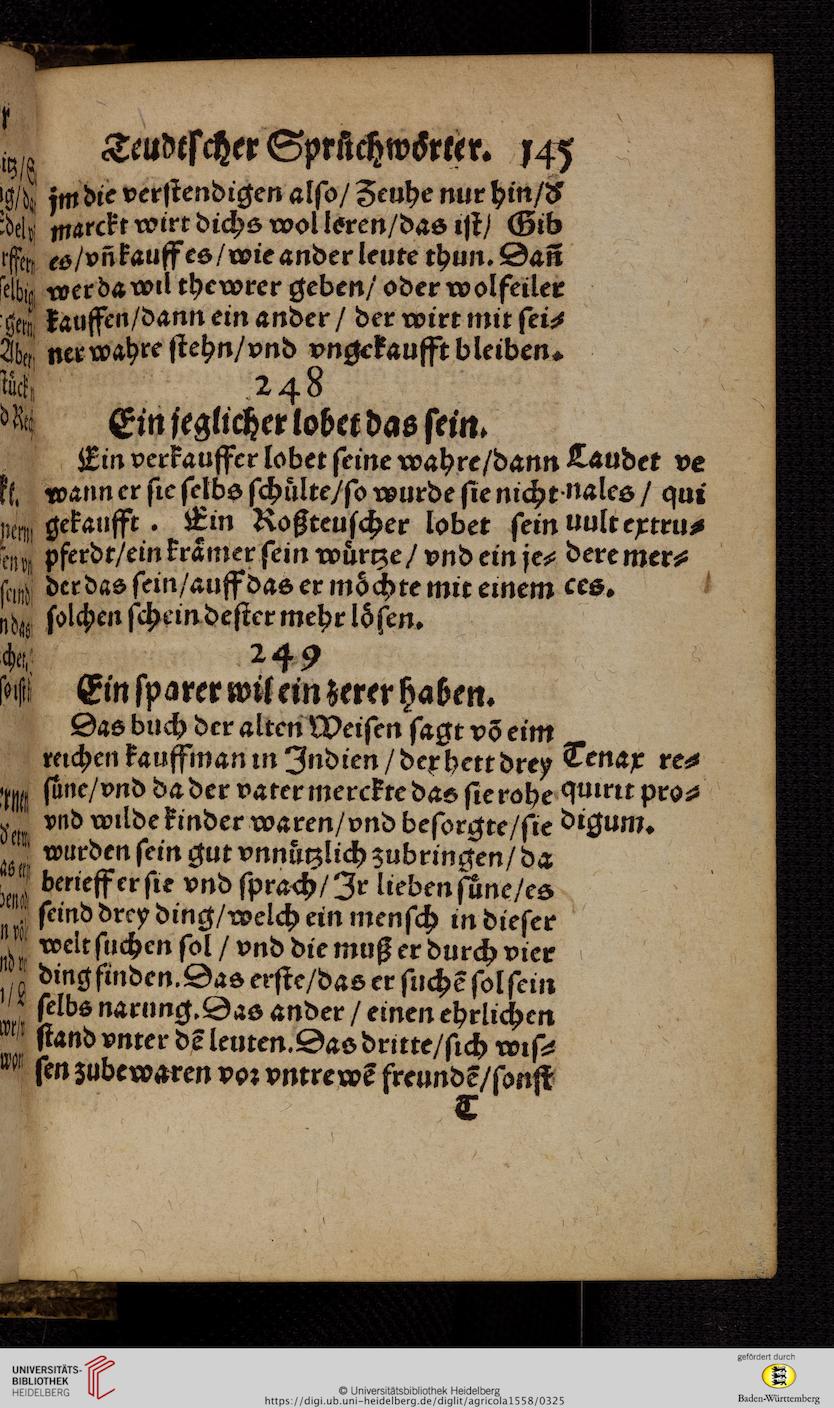 Teudtscher Sprüchwörter. 145
jm die verstendigen also/ Zeuhe nur hin/d̕
marckt wirt dichs wol leren/das ist/ Gib
es/vn̄ kauff es/wie ander leute thun. Dan̄
wer da wil thewrer geben/ oder wolfeiler
kauffen/dann ein ander / der wirt mit sei⸗
ner wahre stehn/vnd vngekaufft bleiben.
248
Ein jeglicher lobet das sein.
Ein verkauffer lobet seine wahre/dann
wann er sie selbs schülte/so wurde sie nicht
gekaufft . Ein Roßteuscher lobet sein
pferdt/ein krämer sein würtze/ vnd ein je⸗
der das sein/auff das er möchte mit einem
solchen schein dester mehr lösen.
Laudet ve
nales / qui
uult extru⸗
dere mer⸗
ces.
249
Ein sparer wil ein zerer haben.
Das buch der alten Weisen sagt võ eim
reichen kauffman in Indien / der hett drey
süne/vnd da der vater merckte das sie rohe
vnd wilde kinder waren/vnd besorgte/sie
wurden sein gut vnnützlich zubringen/ da
berieff er sie vnd sprach/ Ir lieben süne/es
seind drey ding/welch ein mensch in dieser
welt suchen sol / vnd die muß er durch vier
ding finden. Das erste/das er suchẽ sol sein
selbs narung. Das ander / einen ehrlichen
stand vnter dẽ leuten. Das dritte/sich wis⸗
sen zubewaren vor vntrewẽ freundẽ/sonst
Tenax re⸗
quirit pro⸗
digum.
T
UNIVERSITÄTS-
BIBLIOTHEK
HEIDELBERG
© Universitätsbibliothek Heidelberg
https://digi.ub.uni-heidelberg.de/diglit/agricola1558/0325
gefördert durch
Baden-Württemberg